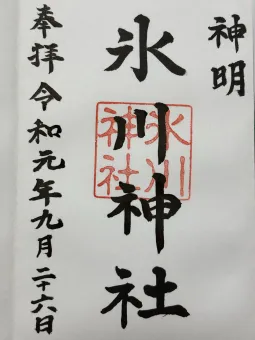 神明
氷川神社
氷川
神社
奉拝 令和元年九月二十六日